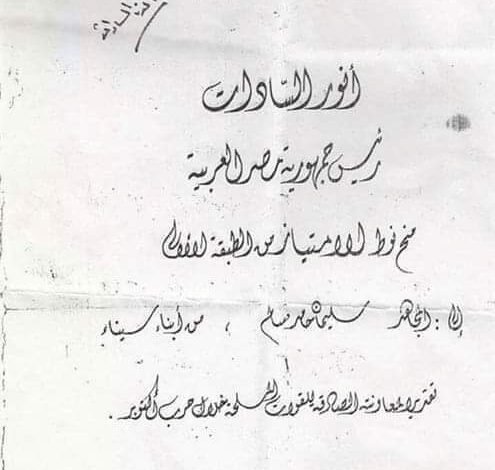 أنور السادات
رئيس جمهورية مصر العربية
منح نوط الامتياز من الطبقة الأولى
إلى : المجاهد سليمان حامد سالم ، من أبناء سيناء
تقديراً لمعاونته الصادقة للقوات المسلحة خلال حرب أكتوبر .